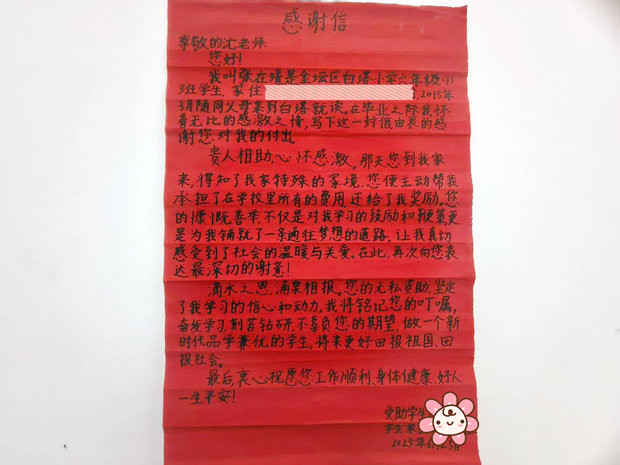 感谢信
尊敬的沈老师:
您好!
我叫张在靖是金坛区白塔小学六年级(1)
班学生,家住 ,2015年
3月随同父母来到白塔就读。在毕业之际我怀
着无比的感激之情,写下这一封信由衷的感
谢您对我的付出
贵人相助,心怀感激。那天您到我家
来,得知了我家特殊的家境,您便主动帮我
承担了在学校里所有的费用,还给了我奖励。您
的慷慨善举不仅是对我学习的鼓励和鞭策更
是为我铺就了一条通往梦想的道路,让我真切
感受到了社会的温暖与关爱。在此,再次向您表
达最深切的谢意!
滴水之恩,涌泉相报。您的无私资助,坚定
了我学习的信心和动力。我将铭记您的叮嘱,
奋发学习,刻苦钻研,不辜负您的期望,做一个新
时代品学兼优的学生,将来更好回报祖国、回
报社会。
最后,衷心祝愿您工作顺利、身体健康、好人
一生平安!
受助学生
学生家
2025年6月25日